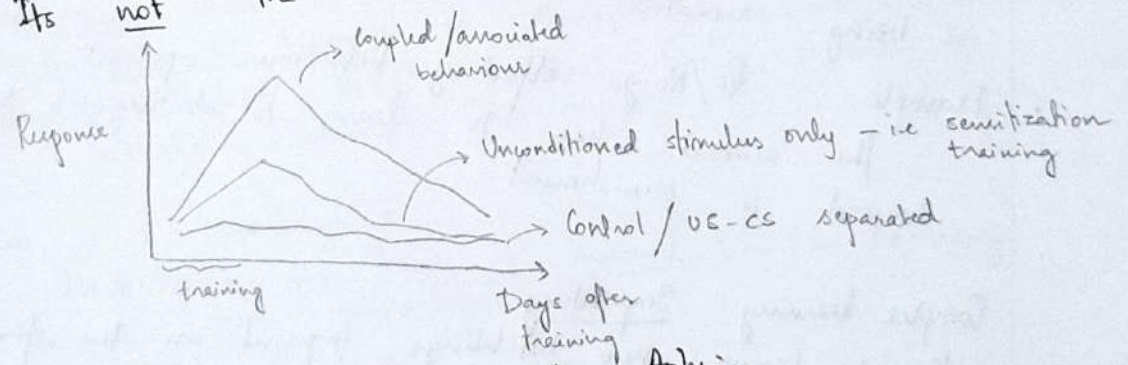 Its not
Coupled / associated
behaviour
Response
Unconditioned stimulus only - i.e sensitization
training
Control / US-CS separated
training
Days after
training